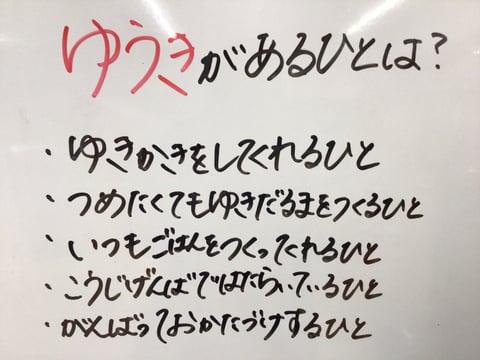 ゆうきがあるひとは?
・ゆきかきをしてくれるひと
・つめたくてもゆきだるまをつくるひと
・いつもごはんをつくってくれるひと
・こうじげんばではたらいているひと
・がんばっておかたづけするひと